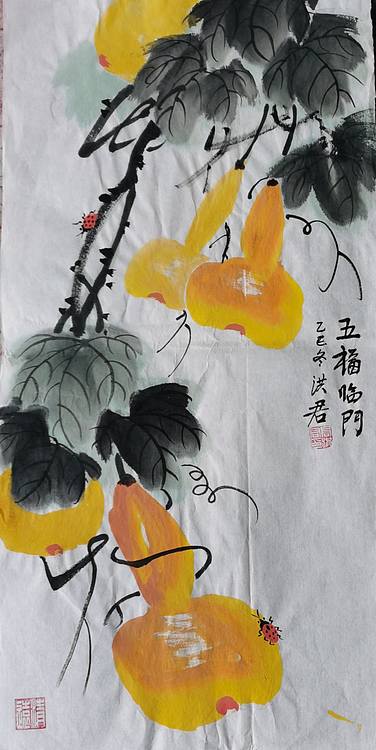 五福临門
乙巳冬洪君